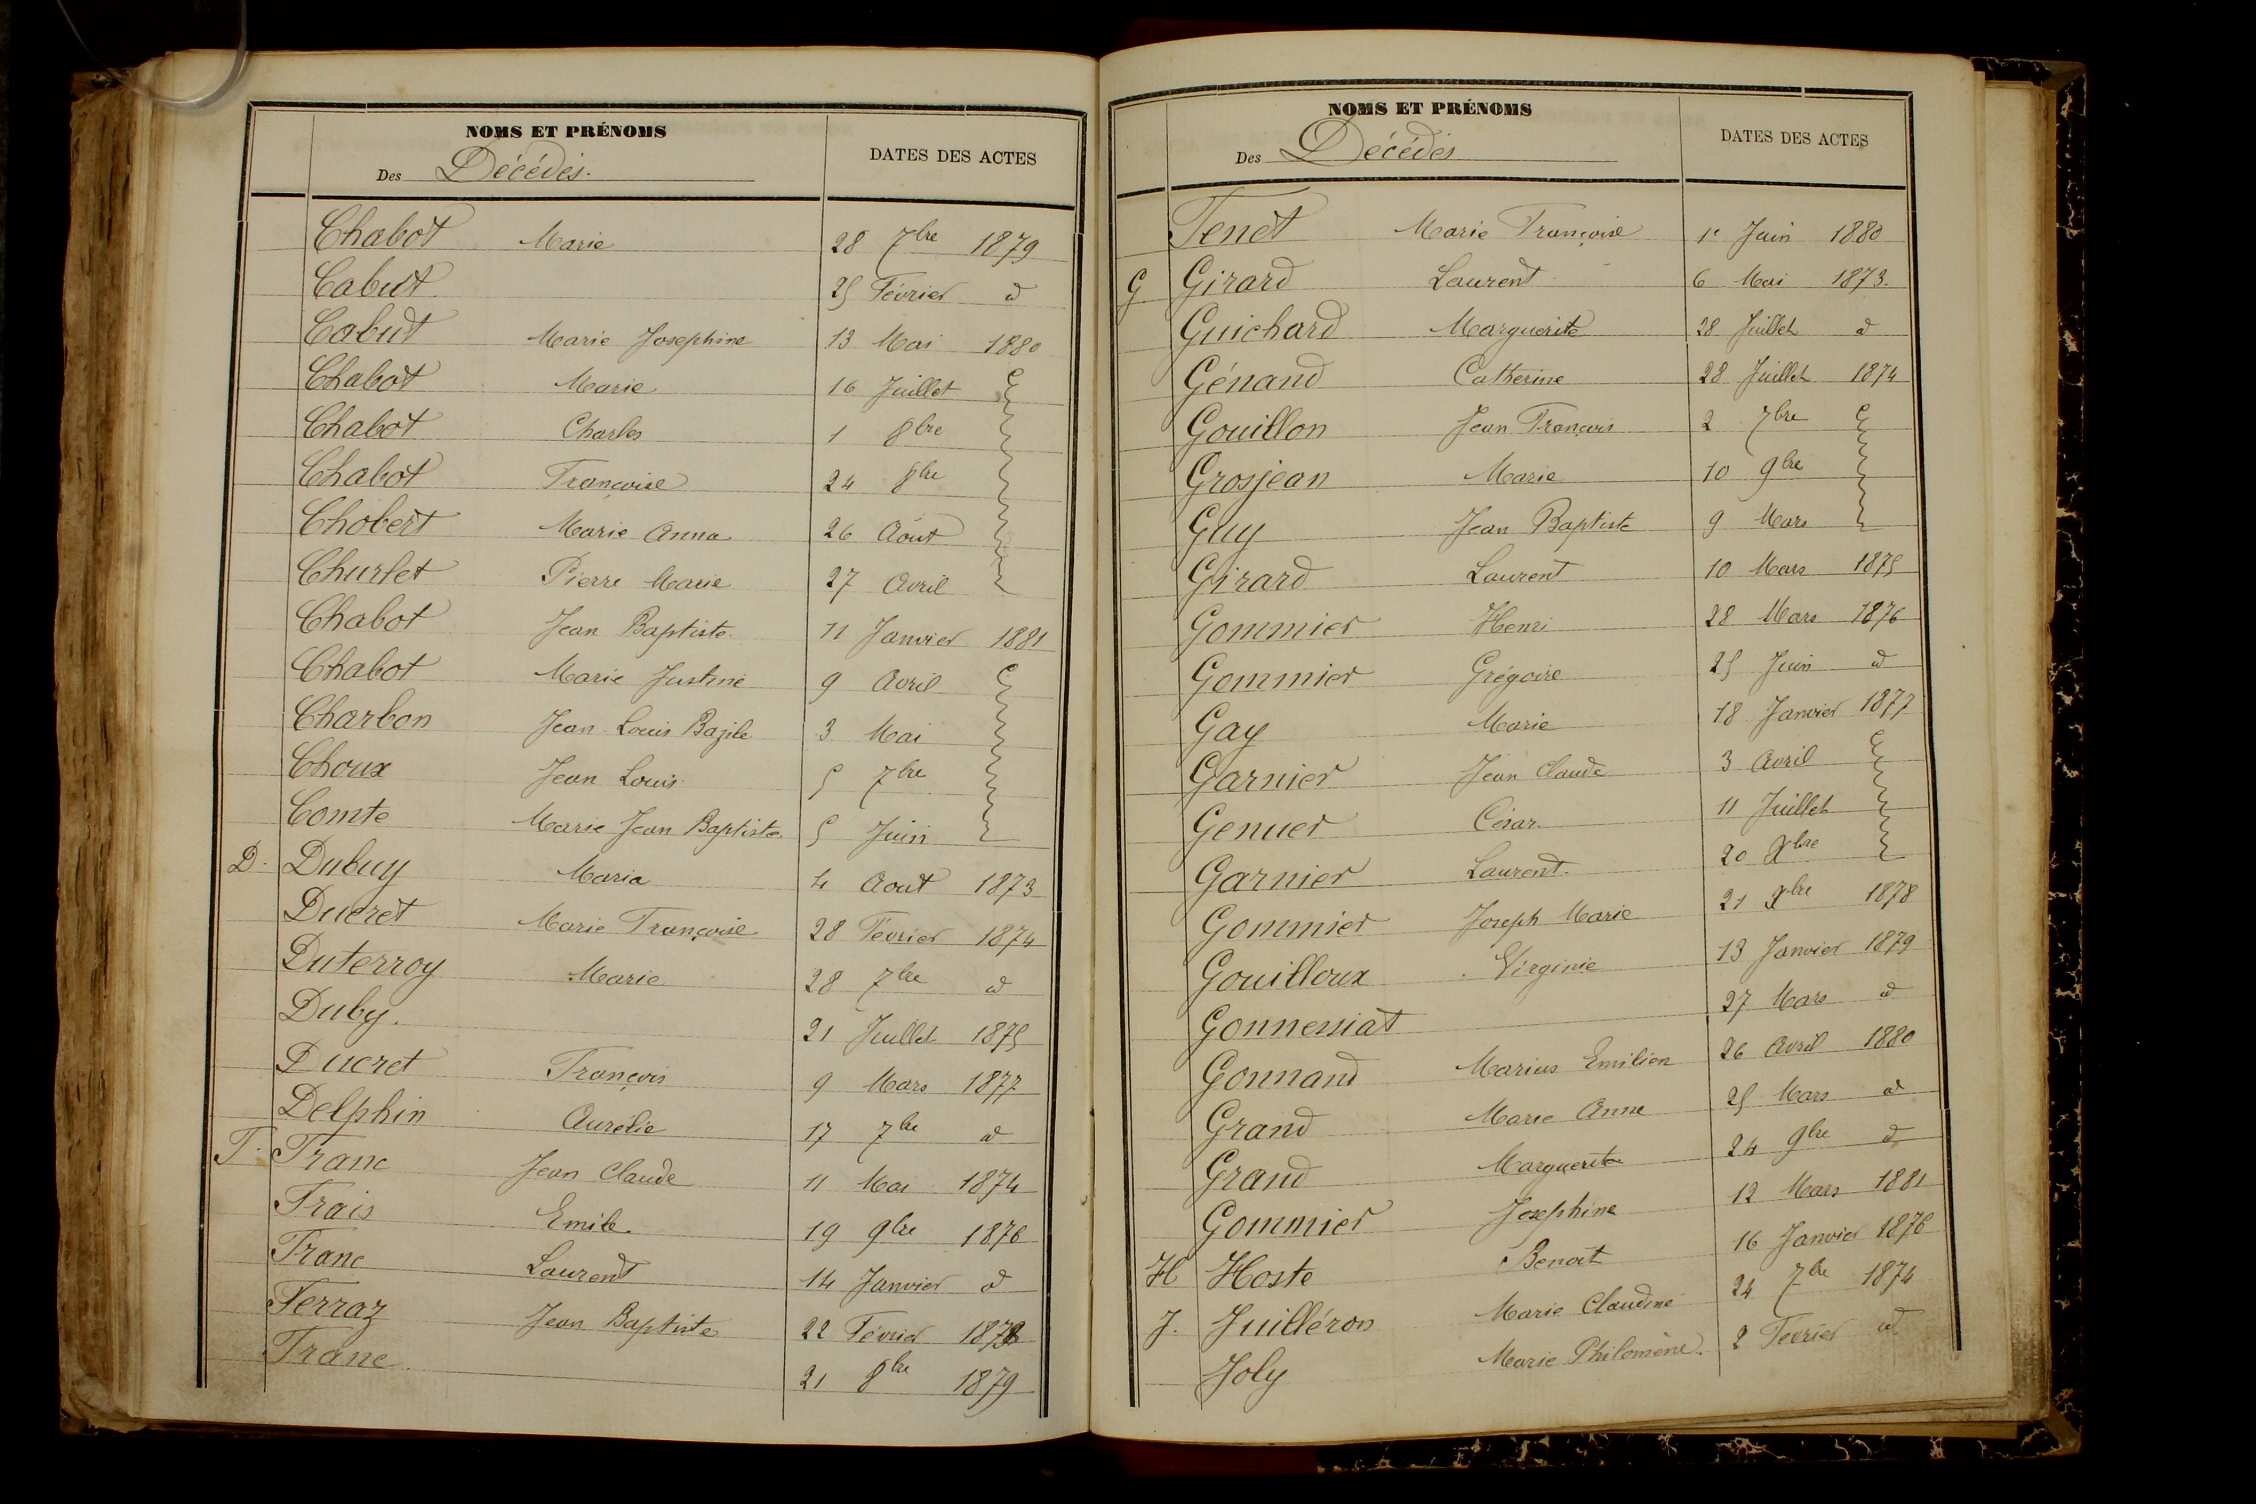 NOMS ET PRÉNOMS
Des Décédés.
DATES DES ACTES
Chabot Marie 28 7bre 1879
Cabut 25 Février d
Cabut Marie Josephine 13 Mai 1880
Chabot Marie 16 Juillet
Chabot Charles 1 8bre
Chabot Françoise 24 8bre
Chobert Marie Anna 26 Aout
Churlet Pierre Marie 27 Avril
Chabot Jean Baptiste 11 Janvier 1881
Chabot Marie Justine 9 Avril
Charbon Jean Louis Bazile 3 Mai
Choux Jean Louis 5 7bre
Comte Marie Jean Baptiste 5 Juin
D. Dubuy Maria 4 Aout 1873
Ducret Marie Françoise 28 Février 1874
Duterroy Marie 28 7bre d
Duby. 21 Juillet 1875
Ducret François 9 Mars 1877
Delphin Aurélie 17 7bre d
F. Franc Jean Claude 11 Mai 1874
Frais Emile 19 9bre 1876
Franc Laurent 14 Janvier d
Ferraz Jean Baptiste 22 Février
Franc 21 8bre 1879
NOMS ET PRÉNOMS
Des Décédés
DATES DES ACTES
Fenet Marie Françoise 1r Juin 1880
G Girard Laurent 6 Mai 1873.
Guichard Marguerite 28 Juillet d
Génand Catherine 28 Juillet 1874
Gouillon Jean François 2 7bre
Grosjean Marie 10 9bre
Guy Jean Baptiste 9 Mars
Girard Laurent 10 Mars 1875
Gommier Henri 28 Mars 1876
Gommier Grégoire 25 Juin d
Gay Marie 18 Janvier 1877
Garnier Jean Claude 3 Avril
Genuer César 11 Juillet
Garnier Laurent. 20 Xbre
Gommier Joseph Marie 21 Xbre 1878
Gouilloux Virginie 13 Janvier 1879
Gonnessiat 27 Mars d
Gonnand Marius Emilien 26 Avril 1880
Grand Marie Anne 25 Mars d
Grand Marguerite 24 9bre d
Gommier Josephine 12 Mars 1881
H Hoste Benoit 16 Janvier 1876
J. Juilléron Marie Claudine 24 7bre 1874
Joly Marie Philomène. 2 Fevrier d